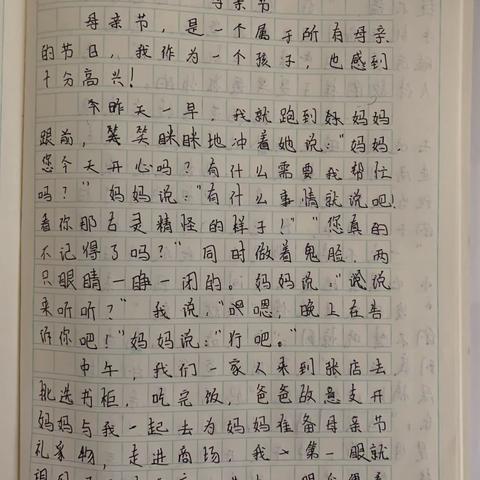 母亲节
母亲节，是一个属于所有母亲
的节日，我作为一个孩子，也感到
十分高兴！
昨天一早，我就跑到妈妈
跟前，笑眯眯地冲着她说：“妈妈，
您今天开心吗？有什么需要我帮忙
吗？”妈妈说：“有什么事情就说吧！
看你那古灵精怪的样子！”“您真的
不记得了吗？”同时做着鬼脸，两
只眼睛一睁一闭的。妈妈说：“说说
来听听？”我说，“嗯嗯，晚上在告
诉你吧！”妈妈说：“行吧。”
中午，我们一家人来到张店去
挑选书柜，吃完饭，爸爸故意支开
妈妈与我一起去为妈妈准备母亲节
礼物，走进商场，我一第一眼就